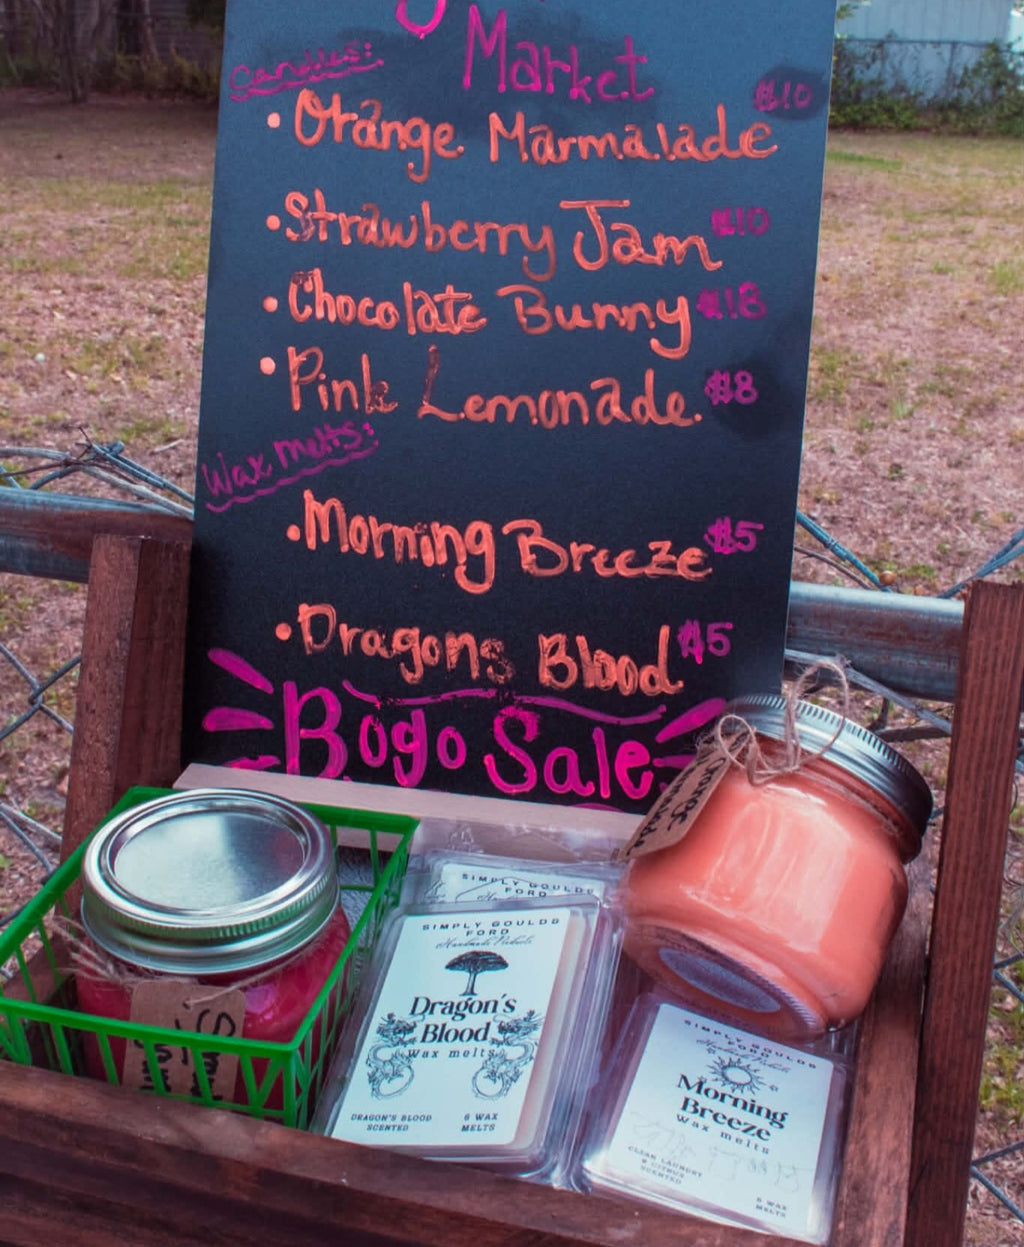 Market
Candles:
• Orange Marmalade $10
• Strawberry Jam $10
• Chocolate Bunny $18
• Pink Lemonade $8
Wax melts:
• Morning Breeze $5
• Dragons Blood $5
Bogo Sale
Orange
SIMPLY GOULDS
FORD
SIMPLY GOULDS
FORD
Handmade Products
Dragon's
Blood
Wax melts
DRAGON'S BLOOD
SCENTED
6 WAX
MELTS
SIMPLY GOULDS
FORD
Handmade Products
Morning
Breeze
Wax melts
CLEAN LAUNDRY
& CITRUS
SCENTED
6 WAX
MELTS